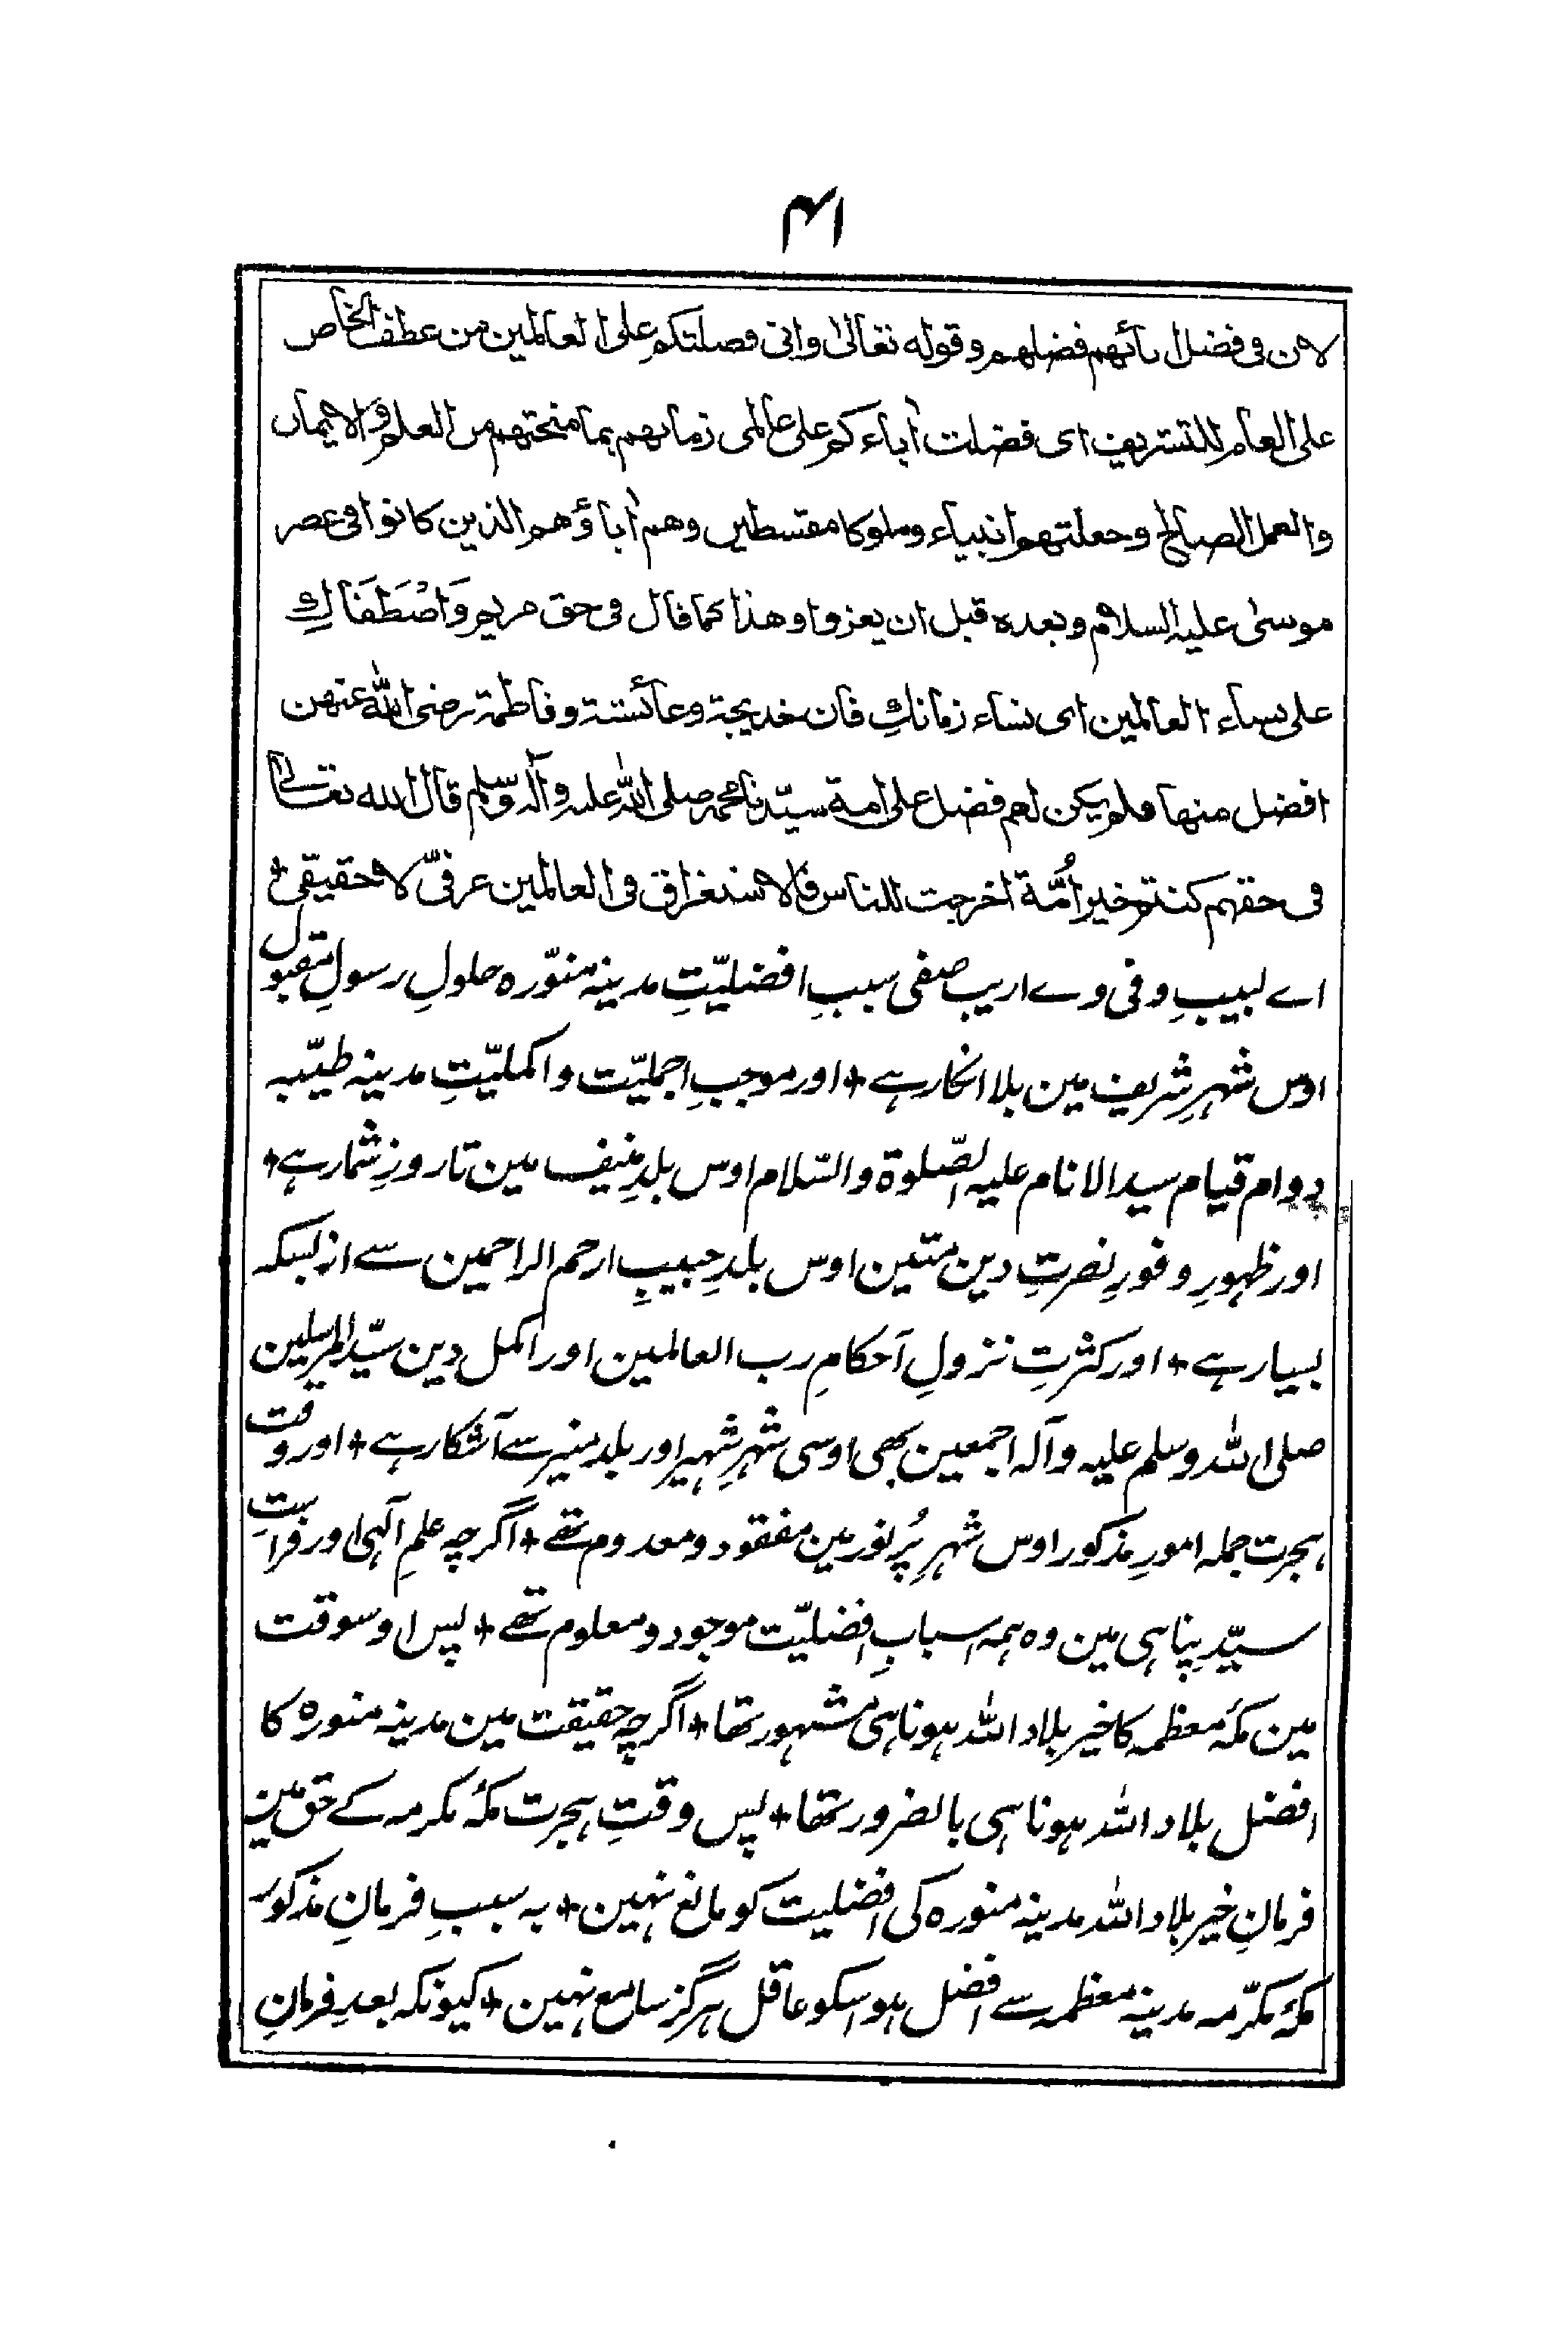 ۴۱
لان فی فضل اٰبائهم فضلهم وقوله تعالیٰ وانی فضلتکم علی العالمین من عطف الخاص
علی العام للتشریف ای فضلت اٰباءکم علی عالمی زمانهم بما منحتهم من العلم والایمان
والعمل الصالح وجعلتهم انبیاء وملوکا مقسطین وهم اٰباؤهم الذین کانوا فی عصر
موسیٰ علیه السلام وبعده قبل ان یغیروا وهذا کما قال فی حق مریم وَاصْطَفَاكِ
علی نساء العالمین ای نساء زمانكِ فان خدیجة وعائشة وفاطمة رضی اللّٰه عنهن
افضل منها ولم یکن لهم فضل علی امة سیّدنا محمد صلی اللّٰه علیه وآله وسّلم قال الله تعالیٰ
فی حقهم کنتم خیر اُمّة اخرجت للناس فالاستغراق فی العالمین عرفیّ لا حقیقی +
اے لبیبِ وفی و ے اریبِ صفی سببِ افضلیّتِ مدینہ منوّرہ حلولِ رسولِ مقبول
اوس شہرِ شریف مین بلا انکار ہے + اور موجبِ اجملیّت و اکملیّتِ مدینہ طیّبہ
دوام قیام سید الانام علیہ الصّلوة والسّلام اوس بلدِ منیف مین تا روزِ شمار ہے +
اور ظہورِ وفورِ نصرتِ دین متین اوس بلدِ حبیبِ ارحم الراحمین سے از بسکہ
بسیار ہے + اور کثرتِ نزولِ احکامِ رب العالمین اور اکمل دین سیّد المرسلین
صلی اللّٰہ وسلم علیہ وآلہ اجمعین بھی اوسی شہرِ شہیر اور بلد منیر سے آشکار ہے + اور وقت
ہجرت جملہ امورِ مذکور اوس شہرِ پُر نور مین مفقود و معدوم تھے + اگرچہ علمِ الٰہی اور فراستِ
سیّدِ پناہی مین وہ ہمہ اسبابِ افضلیّت موجود و معلوم تھے + پس اوسوقت
مین مکۂ معظمہ کا خیر بلاد اللّٰہ ہونا ہی مشہور تھا + اگرچہ حقیقت مین مدینہ منورہ کا
افضل بلاد اللّٰہ ہونا ہی بالضرور تھا + پس وقتِ ہجرت مکۂ مکرمہ کے حق مین
فرمانِ خیر بلاد اللّٰہ مدینہ منورہ کی افضلیت کو مانع نہین + بہ سببِ فرمانِ مذکور
مکۂ مکرّمہ مدینہ معظمہ سے افضل ہو اسکو عاقل ہرگز سامع نہین + کیونکہ بعدِ فرمانِ